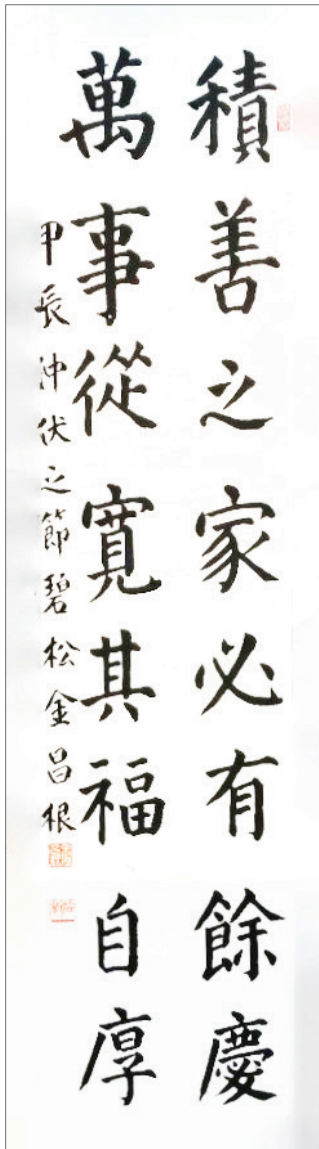 積善之家必有餘慶
萬事從寬其福自厚
甲辰沖伏之節碧松金昌根